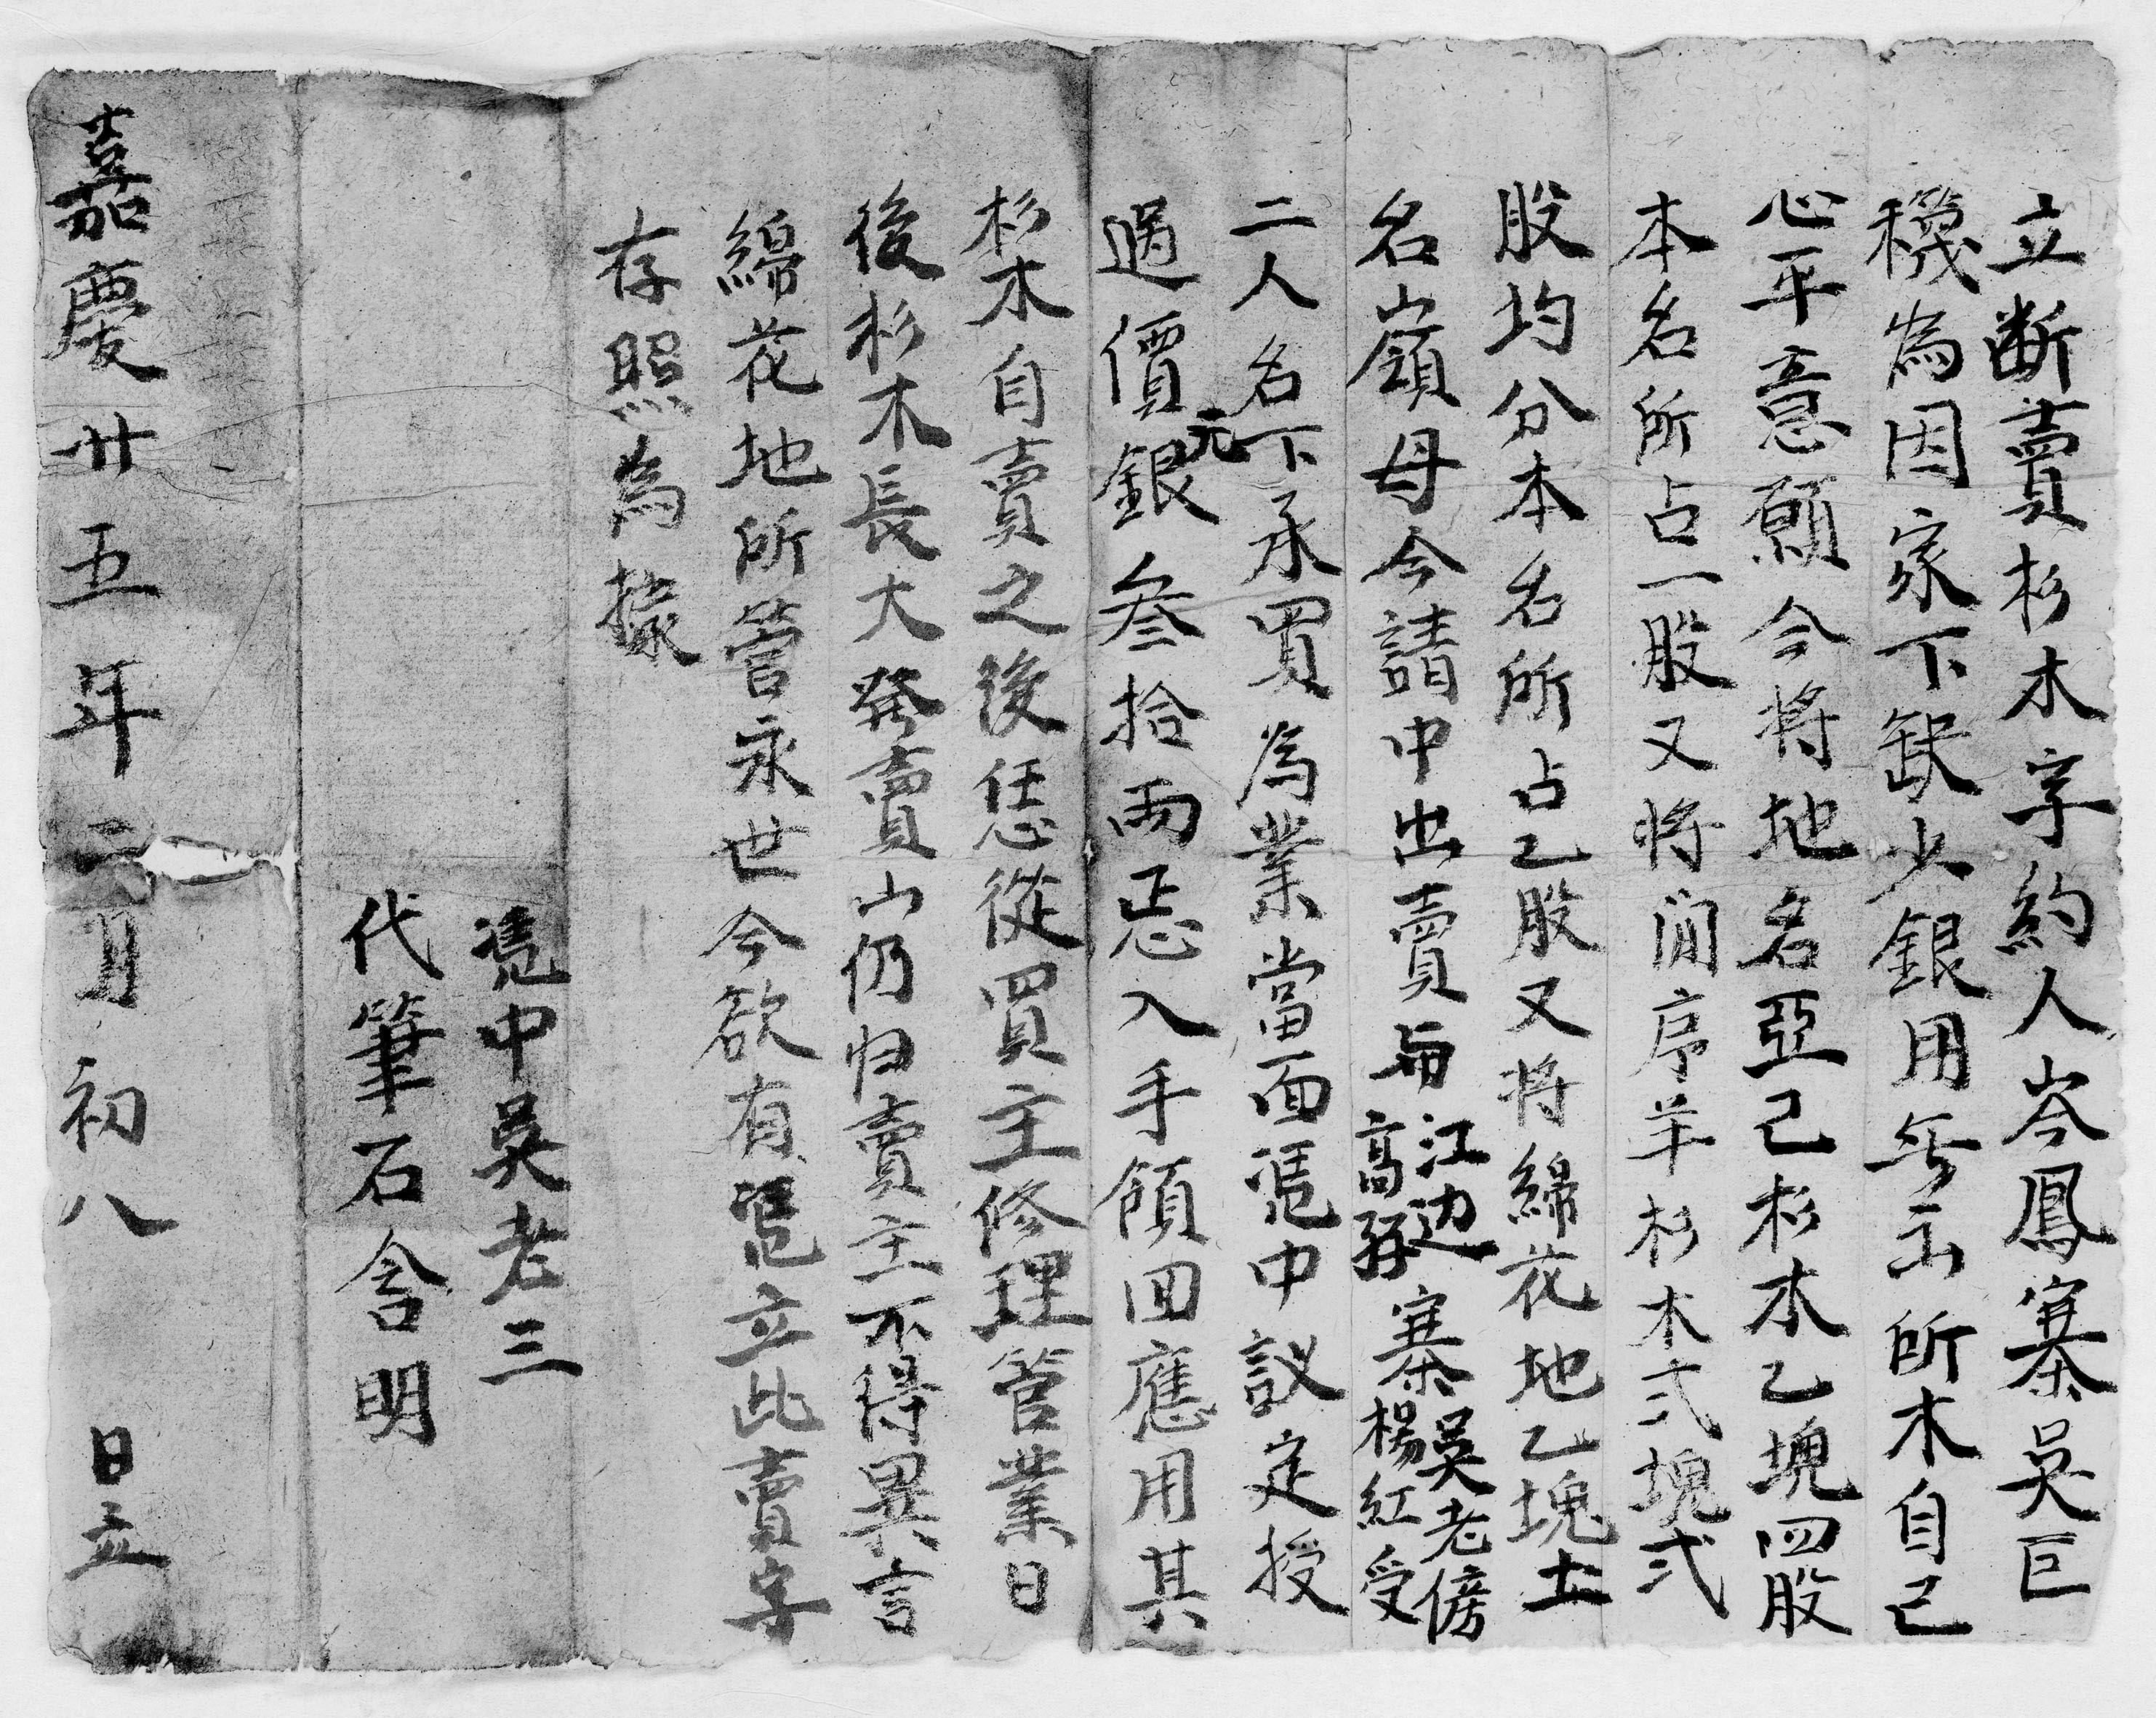 立断賣杉木字約人岑鳳寨吳巨
穖為因家下缺少銀用無出所木自己
心平意愿今将地名亞己杉木乙塊四股
本名所占一股又将汶序羊杉木弍塊弍
股均分本名所占乙股又将綿花地乙塊土
名嶺母今請中出賣與江边高孖寨吳老傍楊紅受
二人名下承買為業當面憑中議定授
過價元銀叁拾両正忘入手領回應用其
杉木自賣之後恁從買主修理管業日
後杉木長大發賣山仍归賣主不得異言
綿花地所管永世今欲有憑立此賣字
存照為據
憑中吳老三
代筆石含明
嘉慶廿五年二月初八日立